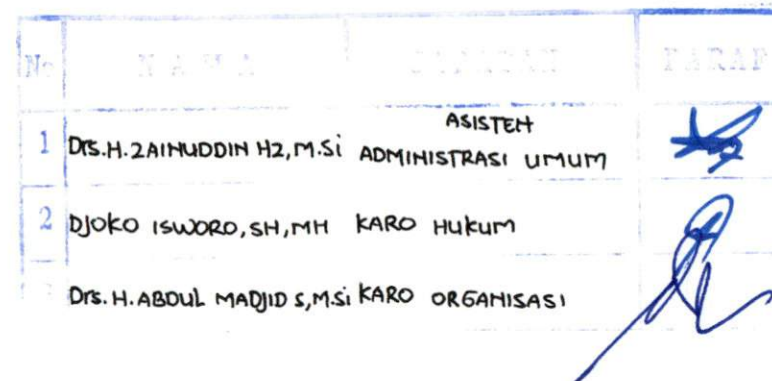 No NAMA JABATAN PARAF
1 Drs.H.ZAINUDDIN HZ,M.Si ASISTEN ADMINISTRASI UMUM
2 DJOKO ISWORO,SH,MH KARO HUKUM
Drs.H.ABDUL MADJID S,M.Si KARO ORGANISASI